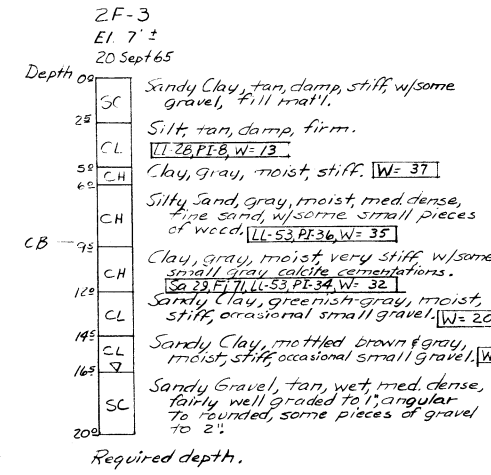 2F-3
El. 7' ±
20 Sept 65
Depth 0⁰
SC
Sandy Clay, tan, damp, stiff, w/some
gravel, fill mat'l.
2⁵
CL
Silt, tan, damp, firm.
LL-28, PI-8, W= 13
5⁰
CH
Clay, gray, moist, stiff. W= 37
6⁰
CH
Silty Sand, gray, moist, med. dense,
fine sand, w/some small pieces
of wood. LL-53, PI-36, W= 35
CB 9⁵
CH
Clay, gray, moist, very stiff, w/some
small gray calcite cementations.
Sa 29, Fi 71, LL-53, PI-34, W= 32
12⁰
CL
Sandy Clay, greenish-gray, moist,
stiff, occasional small gravel. W= 20
14⁵
CL
Sandy Clay, mottled brown & gray,
moist, stiff, occasional small gravel. W
16⁵
SC
Sandy Gravel, tan, wet, med. dense,
fairly well graded to 1", angular
to rounded, some pieces of gravel
to 2".
20⁰
Required depth.